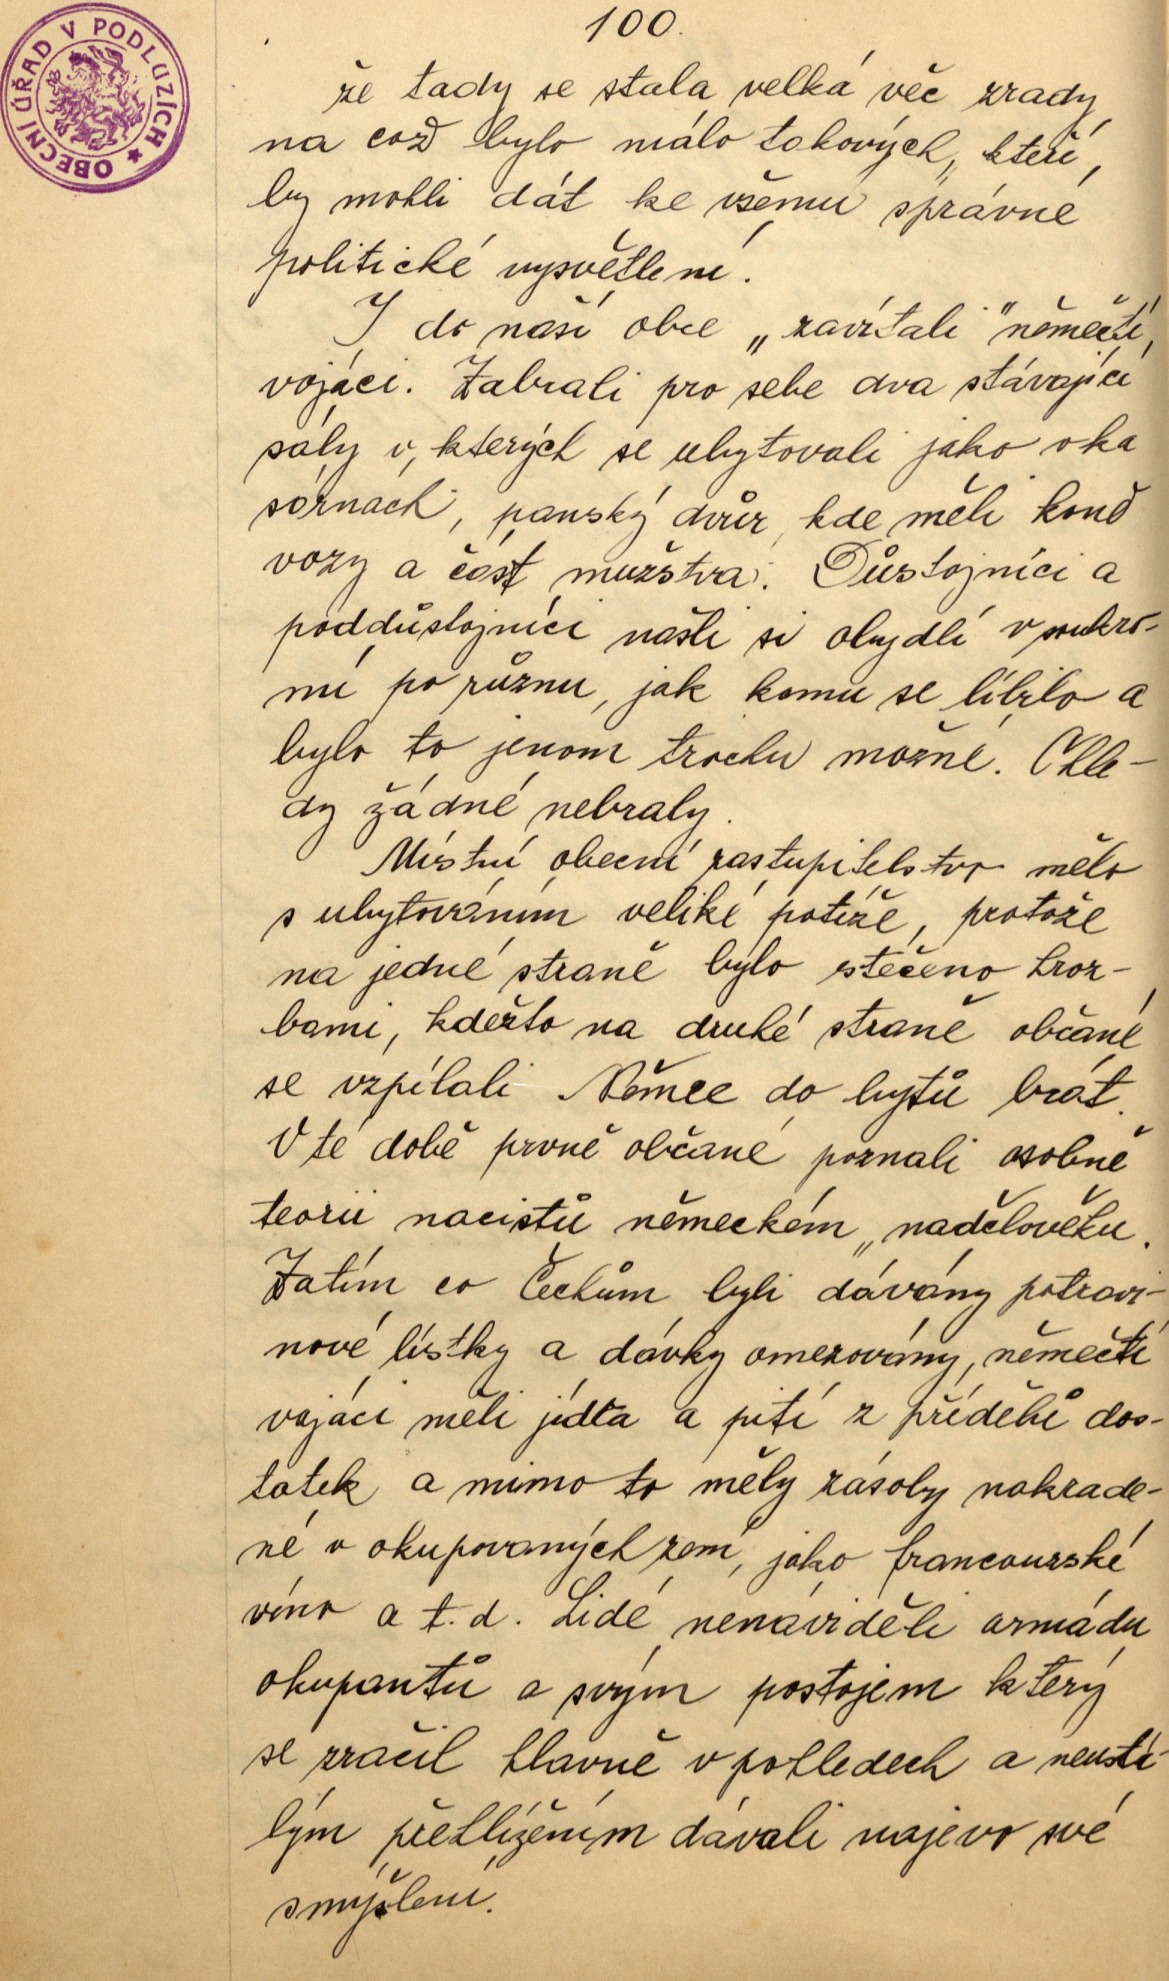 100.
OBECNÍ ÚŘAD V PODLUZÍCH
že tady se stala velká věc zrady
na což bylo málo takových, kteří,
by mohli dát ke všemu správné
politické vysvětlení.
I do naší obce „zavítali" němečtí,
vojáci. Zabrali pro sebe dva stávající
sály v, kterých se ubytovali jako v ka
sárnách, panský dvůr, kde měli koně
vozy a část mužstva. Důstojníci a
poddůstojníci našli si obydlí v soukro-
mí po různu, jak komu se líbilo a
bylo to jenom trochu možné. Ohle-
dy žádné nebraly.
Místní obecní zastupitelstvo mělo
s ubytováním veliké potíže, protože
na jedné straně bylo stečeno hroz-
bami, kdežto na druhé straně občané
se vzpílali Němce do bytů brát.
V té době prvně občané poznali osobně
teorii nacistů německém „nadčlověku.
Zatím co Čechům byli dávány potravi-
nové lístky a dávky omezovány, němečtí
vojáci měli jídla a pití z přídělů dos-
tatek a mimo to měly zásoby nakrade-
né v okupovaných zemí, jako francouzské
víno a t. d. Lidé nenáviděli armádu
okupantů a svým postojem který
se zračil hlavně v pohledech a neustá-
lým přehlížením dávali najevo své
smýšlení.